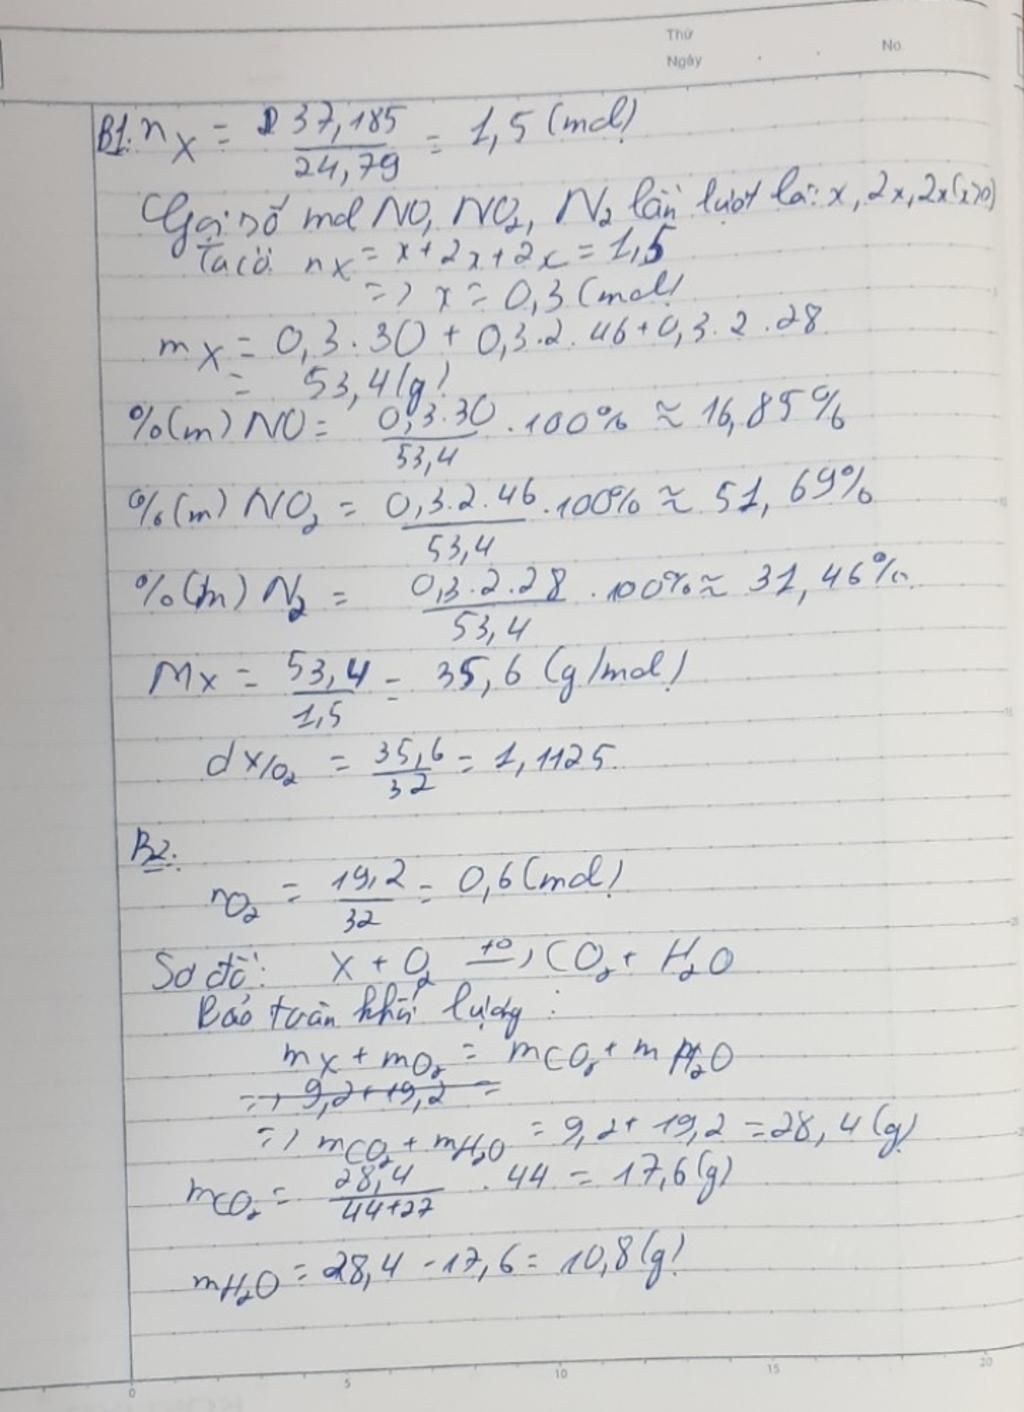 Thứ
Ngày
No.
B1: nX = 37,185/24,79 = 1,5 (mol)
Gọi số mol NO, NO2, N2 lần lượt là: x, 2x, 2x (x>0)
Ta có: nX = x + 2x + 2x = 1,5
=> x = 0,3 (mol)
mX = 0,3.30 + 0,3.2.46 + 0,3.2.28
= 53,4 (g)
%(m) NO = 0,3.30/53,4 .100% ≈ 16,85%
%(m) NO2 = 0,3.2.46/53,4 .100% ≈ 51,69%
%(m) N2 = 0,3.2.28/53,4 .100% ≈ 31,46%
MX = 53,4/1,5 = 35,6 (g/mol)
dX/O2 = 35,6/32 = 1,1125.
B2:
nO2 = 19,2/32 = 0,6 (mol)
Sơ đồ: X + O2 –t°–> CO2 + H2O
Bảo toàn khối lượng:
mX + mO2 = mCO2 + mH2O
=> 9,2 + 19,2 =
=> mCO2 + mH2O = 9,2 + 19,2 = 28,4 (g)
mCO2 = 28,4/44+27 . 44 = 17,6 (g)
mH2O = 28,4 - 17,6 = 10,8 (g)
0 5 10 15 20